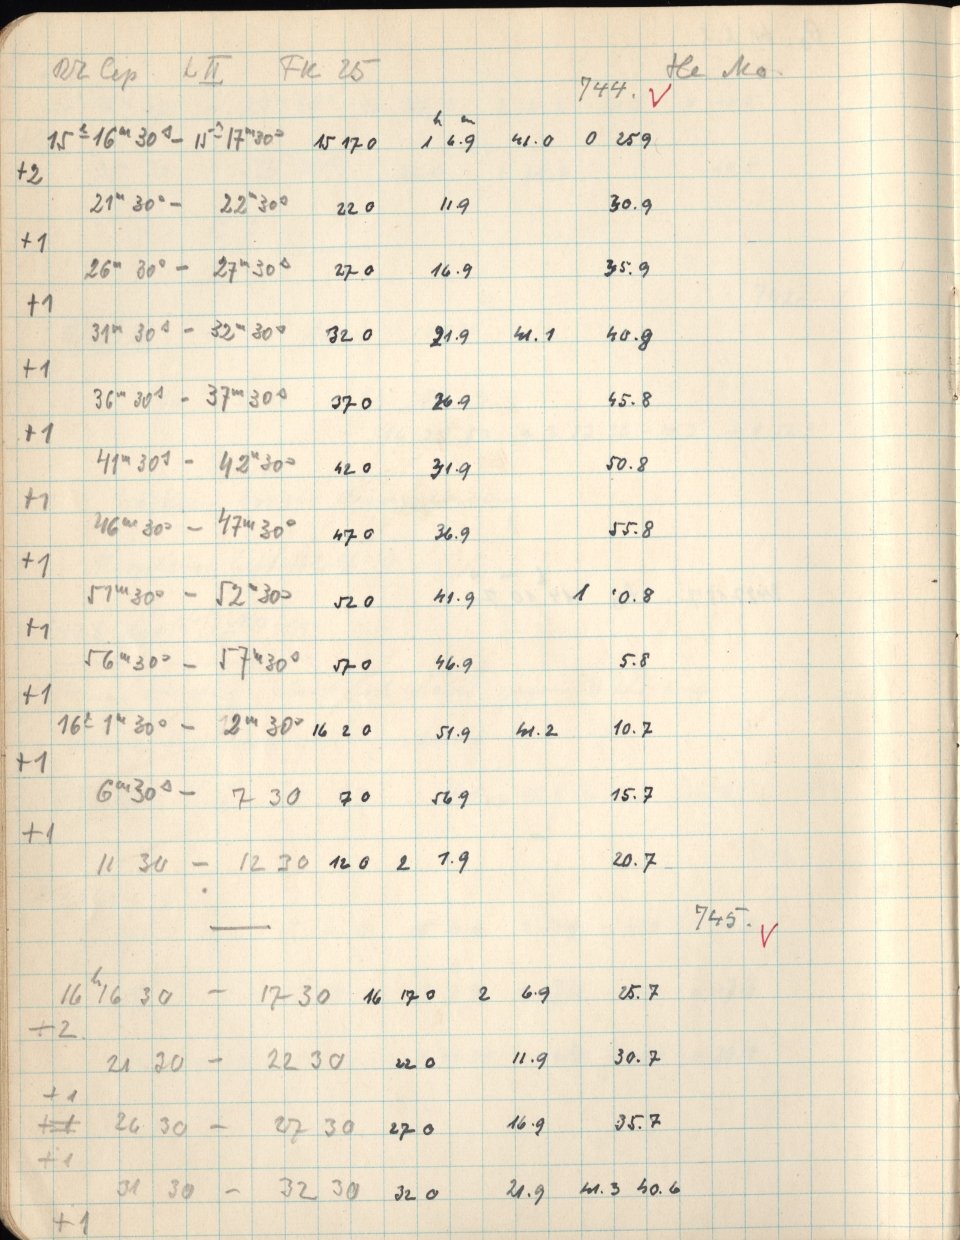 RZ Cep L II FK 25 He Ma.
744. ✓
15ʰ 16ᵐ 30ˢ – 15ʰ 17ᵐ 30ˢ 15 17 0 1ʰ 6.9ᵐ 41.0 0 25 9
+2
21ᵐ 30ˢ – 22ᵐ 30ˢ 22 0 11.9 30.9
+1
26ᵐ 30ˢ – 27ᵐ 30ˢ 27 0 16.9 35.9
+1
31ᵐ 30ˢ – 32ᵐ 30ˢ 32 0 21.9 41.1 40.9
+1
36ᵐ 30ˢ – 37ᵐ 30ˢ 37 0 26.9 45.8
+1
41ᵐ 30ˢ – 42ᵐ 30ˢ 42 0 31.9 50.8
+1
46ᵐ 30ˢ – 47ᵐ 30ˢ 47 0 36.9 55.8
+1
51ᵐ 30ˢ – 52ᵐ 30ˢ 52 0 41.9 1 0.8
+1
56ᵐ 30ˢ – 57ᵐ 30ˢ 57 0 46.9 5.8
+1
16ʰ 1ᵐ 30ˢ – 2ᵐ 30ˢ 16 2 0 51.9 41.2 10.7
+1
6ᵐ 30ˢ – 7 30 7 0 56.9 15.7
+1
11 30 – 12 30 12 0 2 1.9 20.7
745. ✓
16ʰ 16 30 – 17 30 16 17 0 2 6.9 25.7
+2
21 30 – 22 30 22 0 11.9 30.7
+1
26 30 – 27 30 27 0 16.9 35.7
+1
31 30 – 32 30 32 0 21.9 41.3 40.6
+1